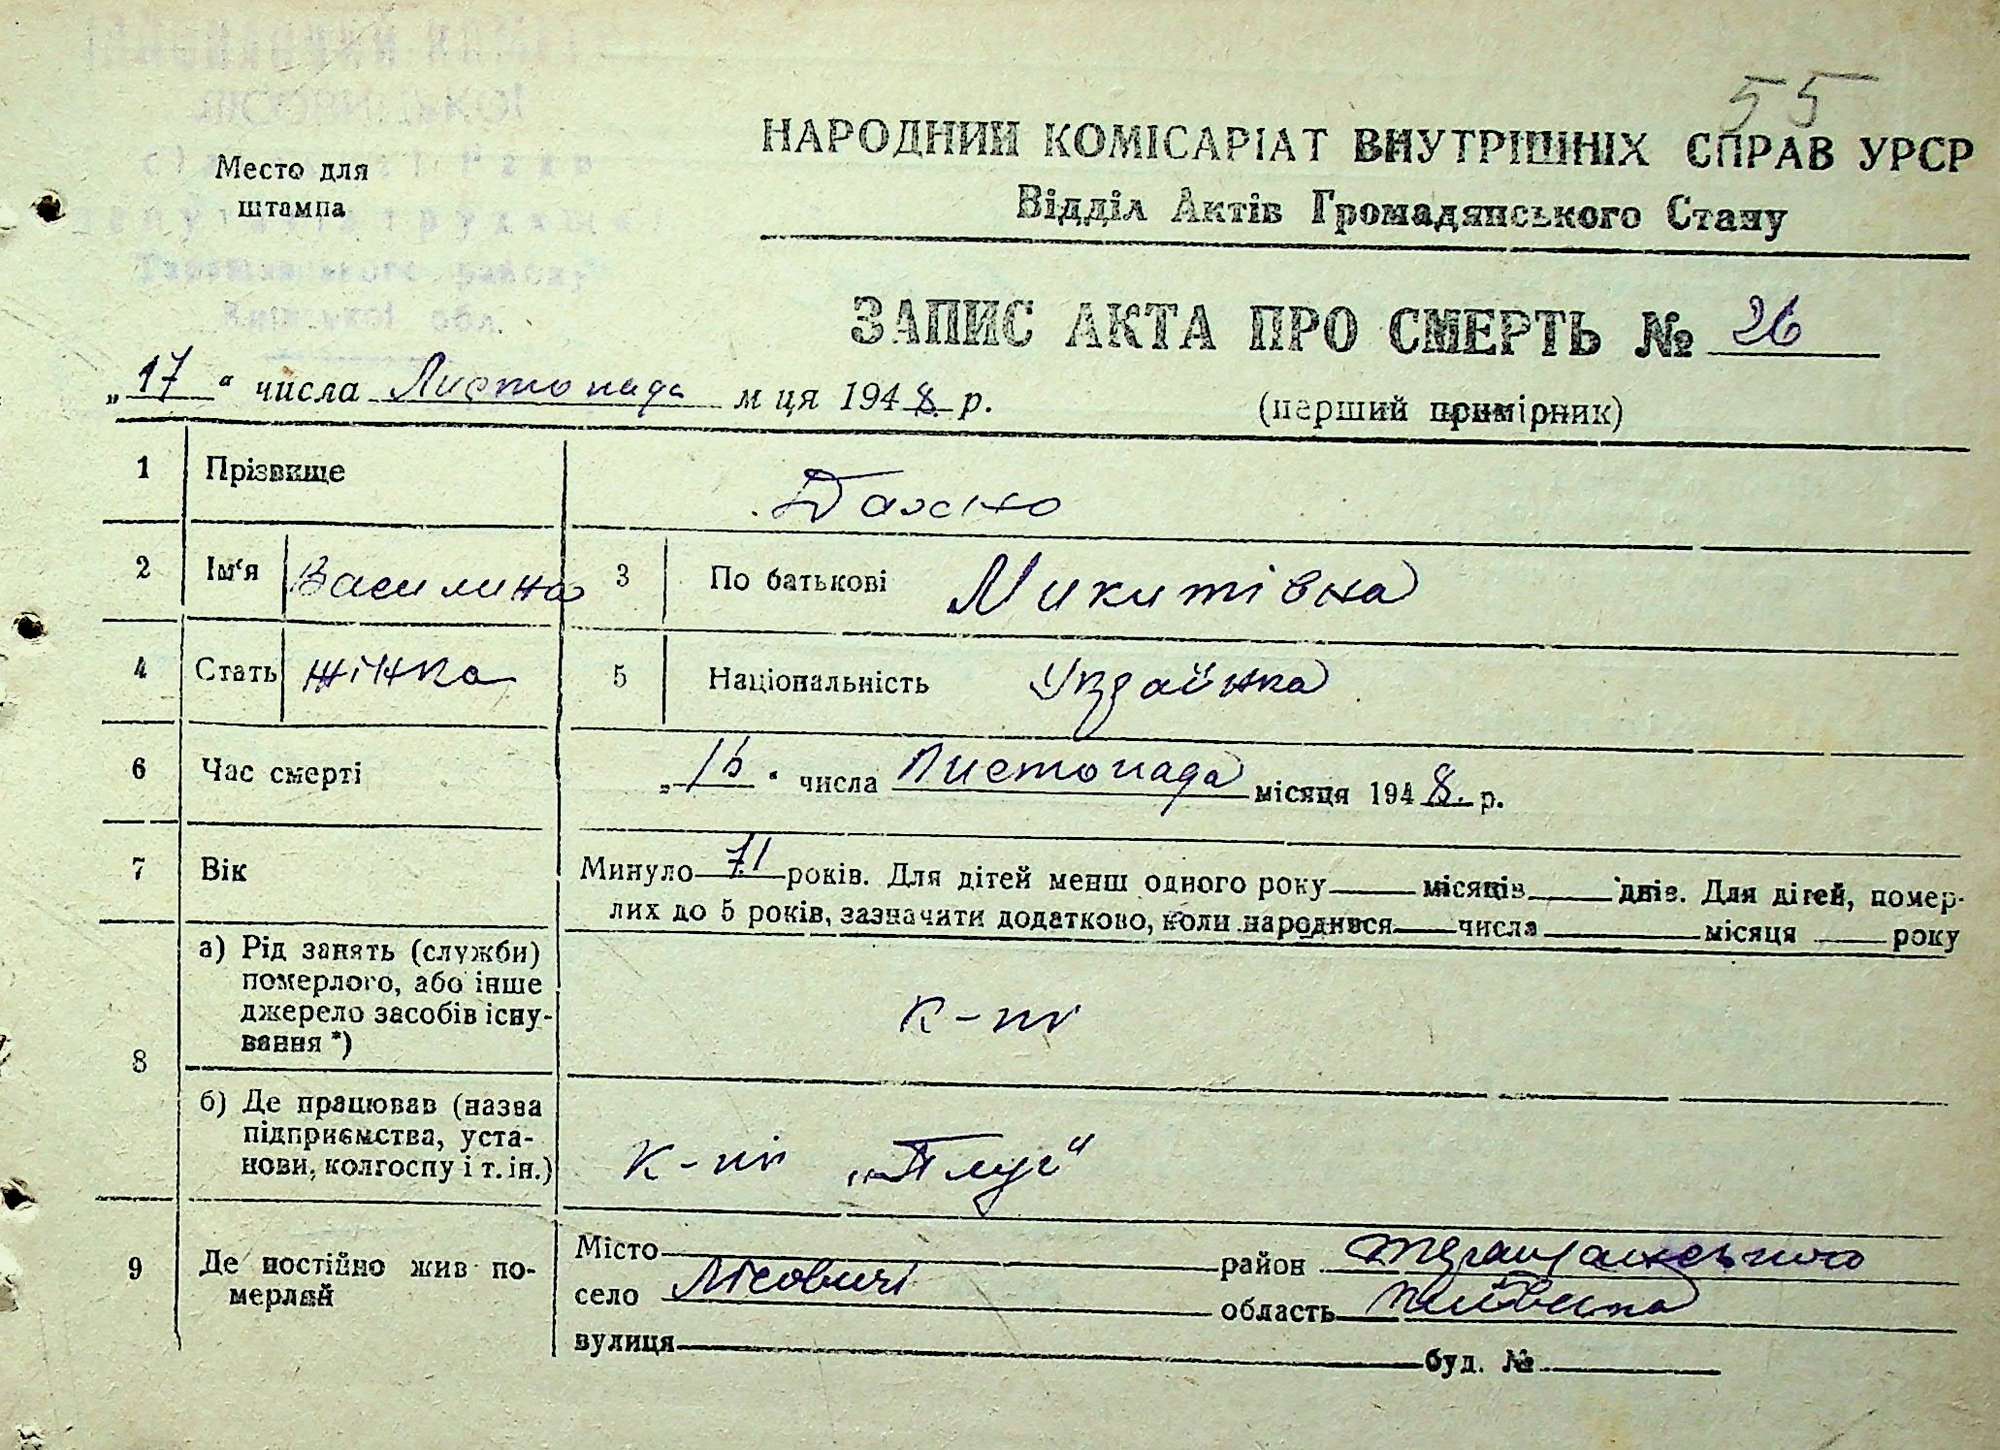 55
ВИКОНАВЧИЙ КОМІТЕТ
ЛІСОВИЦЬКОЇ
Таращанського району
Київської обл.
Место для
штампа
НАРОДНИЙ КОМІСАРІАТ ВНУТРІШНІХ СПРАВ УРСР
Відділ Актів Громадянського Стану
ЗАПИС АКТА ПРО СМЕРТЬ № 26
„17“ числа Листопада м ця 1948 р.
(перший примірник)
1 Прізвище
2 Ім'я Василина 3 По батькові Микитівна
4 Стать жінка 5 Національність Українка
6 Час смерті „ “ числа Листопада місяця 1948. р.
7 Вік Минуло 71 років. Для дітей менш одного року місяців днів. Для дітей, помер-
лих до 5 років, зазначити додатково, коли народився числа місяця року
8 а) Рід занять (служби)
померлого, або інше
джерело засобів існу-
вання *)
б) Де працював (назва
підприємства, уста-
нови, колгоспу і т. ін.)
„Плуг“
9 Де постійно жив по-
мерлий
Місто район Таращанського
село Лісовичі область Київська
вулиця буд. №